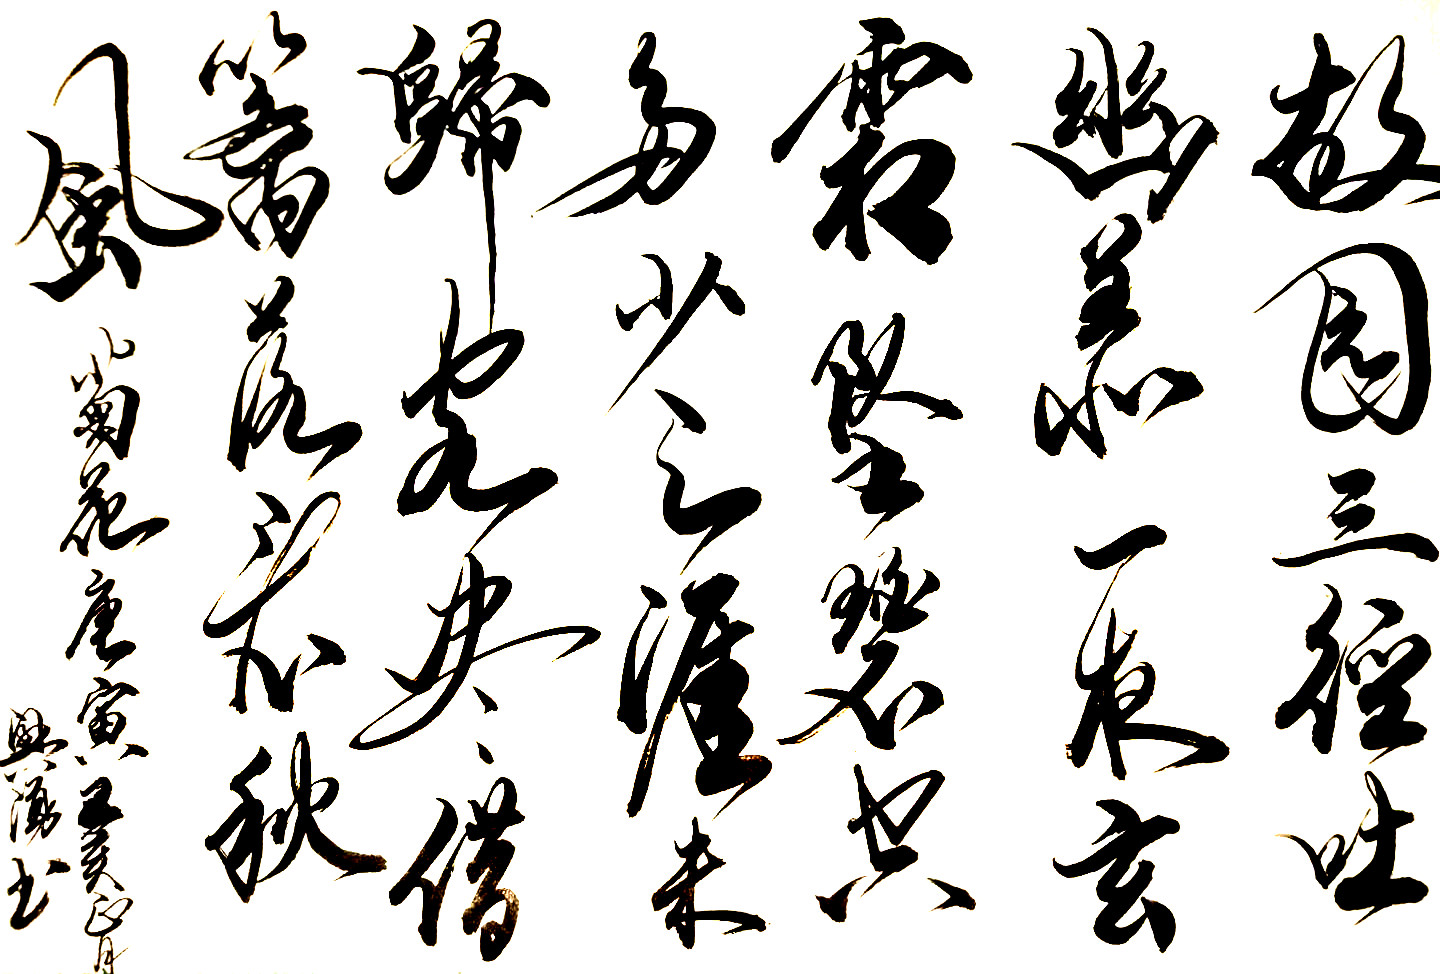 故園三徑吐
幽叢一夜玄
霜墜碧空
多少天涯未
歸客尽借
籬落看秋
風 菊花 唐寅 己亥正月
興 书